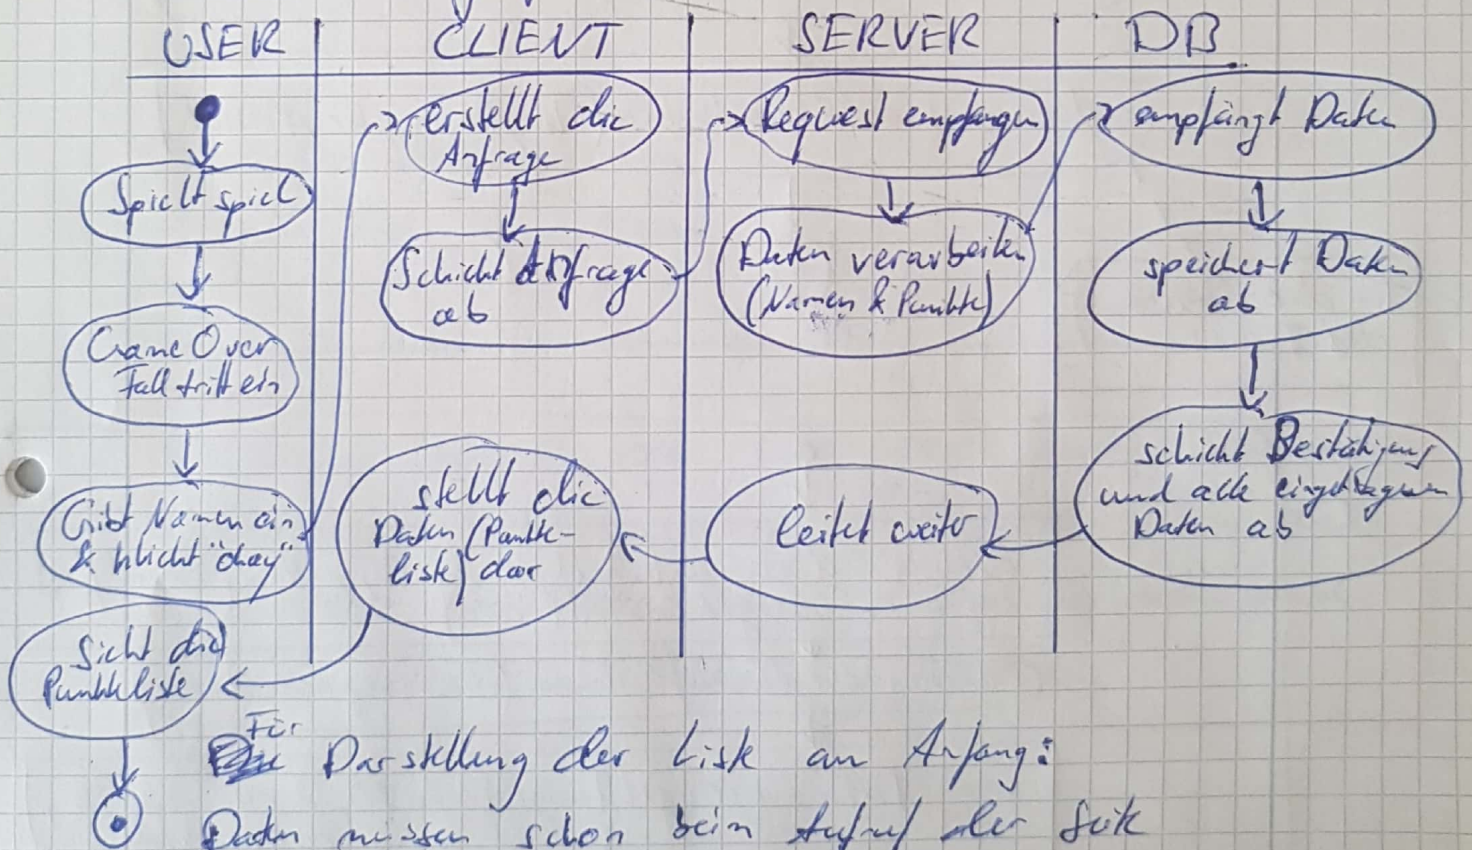 USER
CLIENT
SERVER
DB
Spielt Spiel
Game Over
Fall tritt ein
Gibt Namen ein
& klickt "okay"
Sieht die
Punkteliste
erstellt die
Anfrage
Schickt Anfrage
ab
stellt die
Daten (Punkte-
liste) dar
Request empfangen
Daten verarbeiten
(Namen & Punkte)
leitet weiter
empfängt Daten
speichert Daten
ab
schickt Bestätigung
und alle eingetragenen
Daten ab
Für
Darstellung der Liste am Anfang:
Daten müssen schon beim Aufruf der Seite